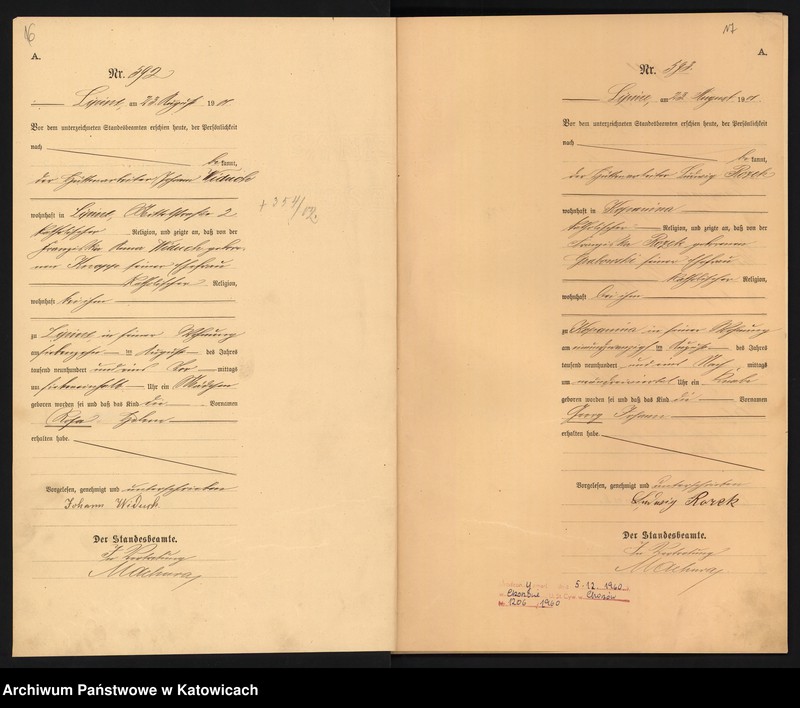 16
A.
Nr. 592
Lipine, am 22. August 1901
Vor dem unterzeichneten Standesbeamten erschien heute, der Persönlichkeit
nach
be kannt,
der Hüttenarbeiter Johann Widuch
wohnhaft in Lipine, Mittelstraße 2
katholischer Religion, und zeigte an, daß von der
Franziska Anna Widuch gebore-
nen Knapp seiner Ehefrau
katholischer Religion,
wohnhaft bei ihm
zu Lipine, in seiner Wohnung
am siebenzehn ten August des Jahres
tausend neunhundert und eins Vor mittags
um sieben einhalb Uhr ein Mädchen
geboren worden sei und daß das Kind die Vornamen
Rosa Helene
erhalten habe.
Vorgelesen, genehmigt und unterschrieben
Johann Widuch
Der Standesbeamte.
In Vertretung
Machura
+ 354/02
17
A.
Nr. 593.
Lipine, am 22. August 1901.
Vor dem unterzeichneten Standesbeamten erschien heute, der Persönlichkeit
nach
be kannt,
der Hüttenarbeiter Ludwig Rozek
wohnhaft in Kopanina
katholischer Religion, und zeigte an, daß von der
Franziska Rozek geborenen
seiner Ehefrau
katholischer Religion,
wohnhaft bei ihm
zu Kopanina in seiner Wohnung
am einundzwanzig ten August des Jahres
tausend neunhundert und eins Nach mittags
um Uhr ein Knabe
geboren worden sei und daß das Kind die Vornamen
Georg
erhalten habe.
Vorgelesen, genehmigt und unterschrieben
Ludwig Rozek
Der Standesbeamte.
In Vertretung
Machura
5-12 1960
Chorzów
1206 1960
Archiwum Państwowe w Katowicach